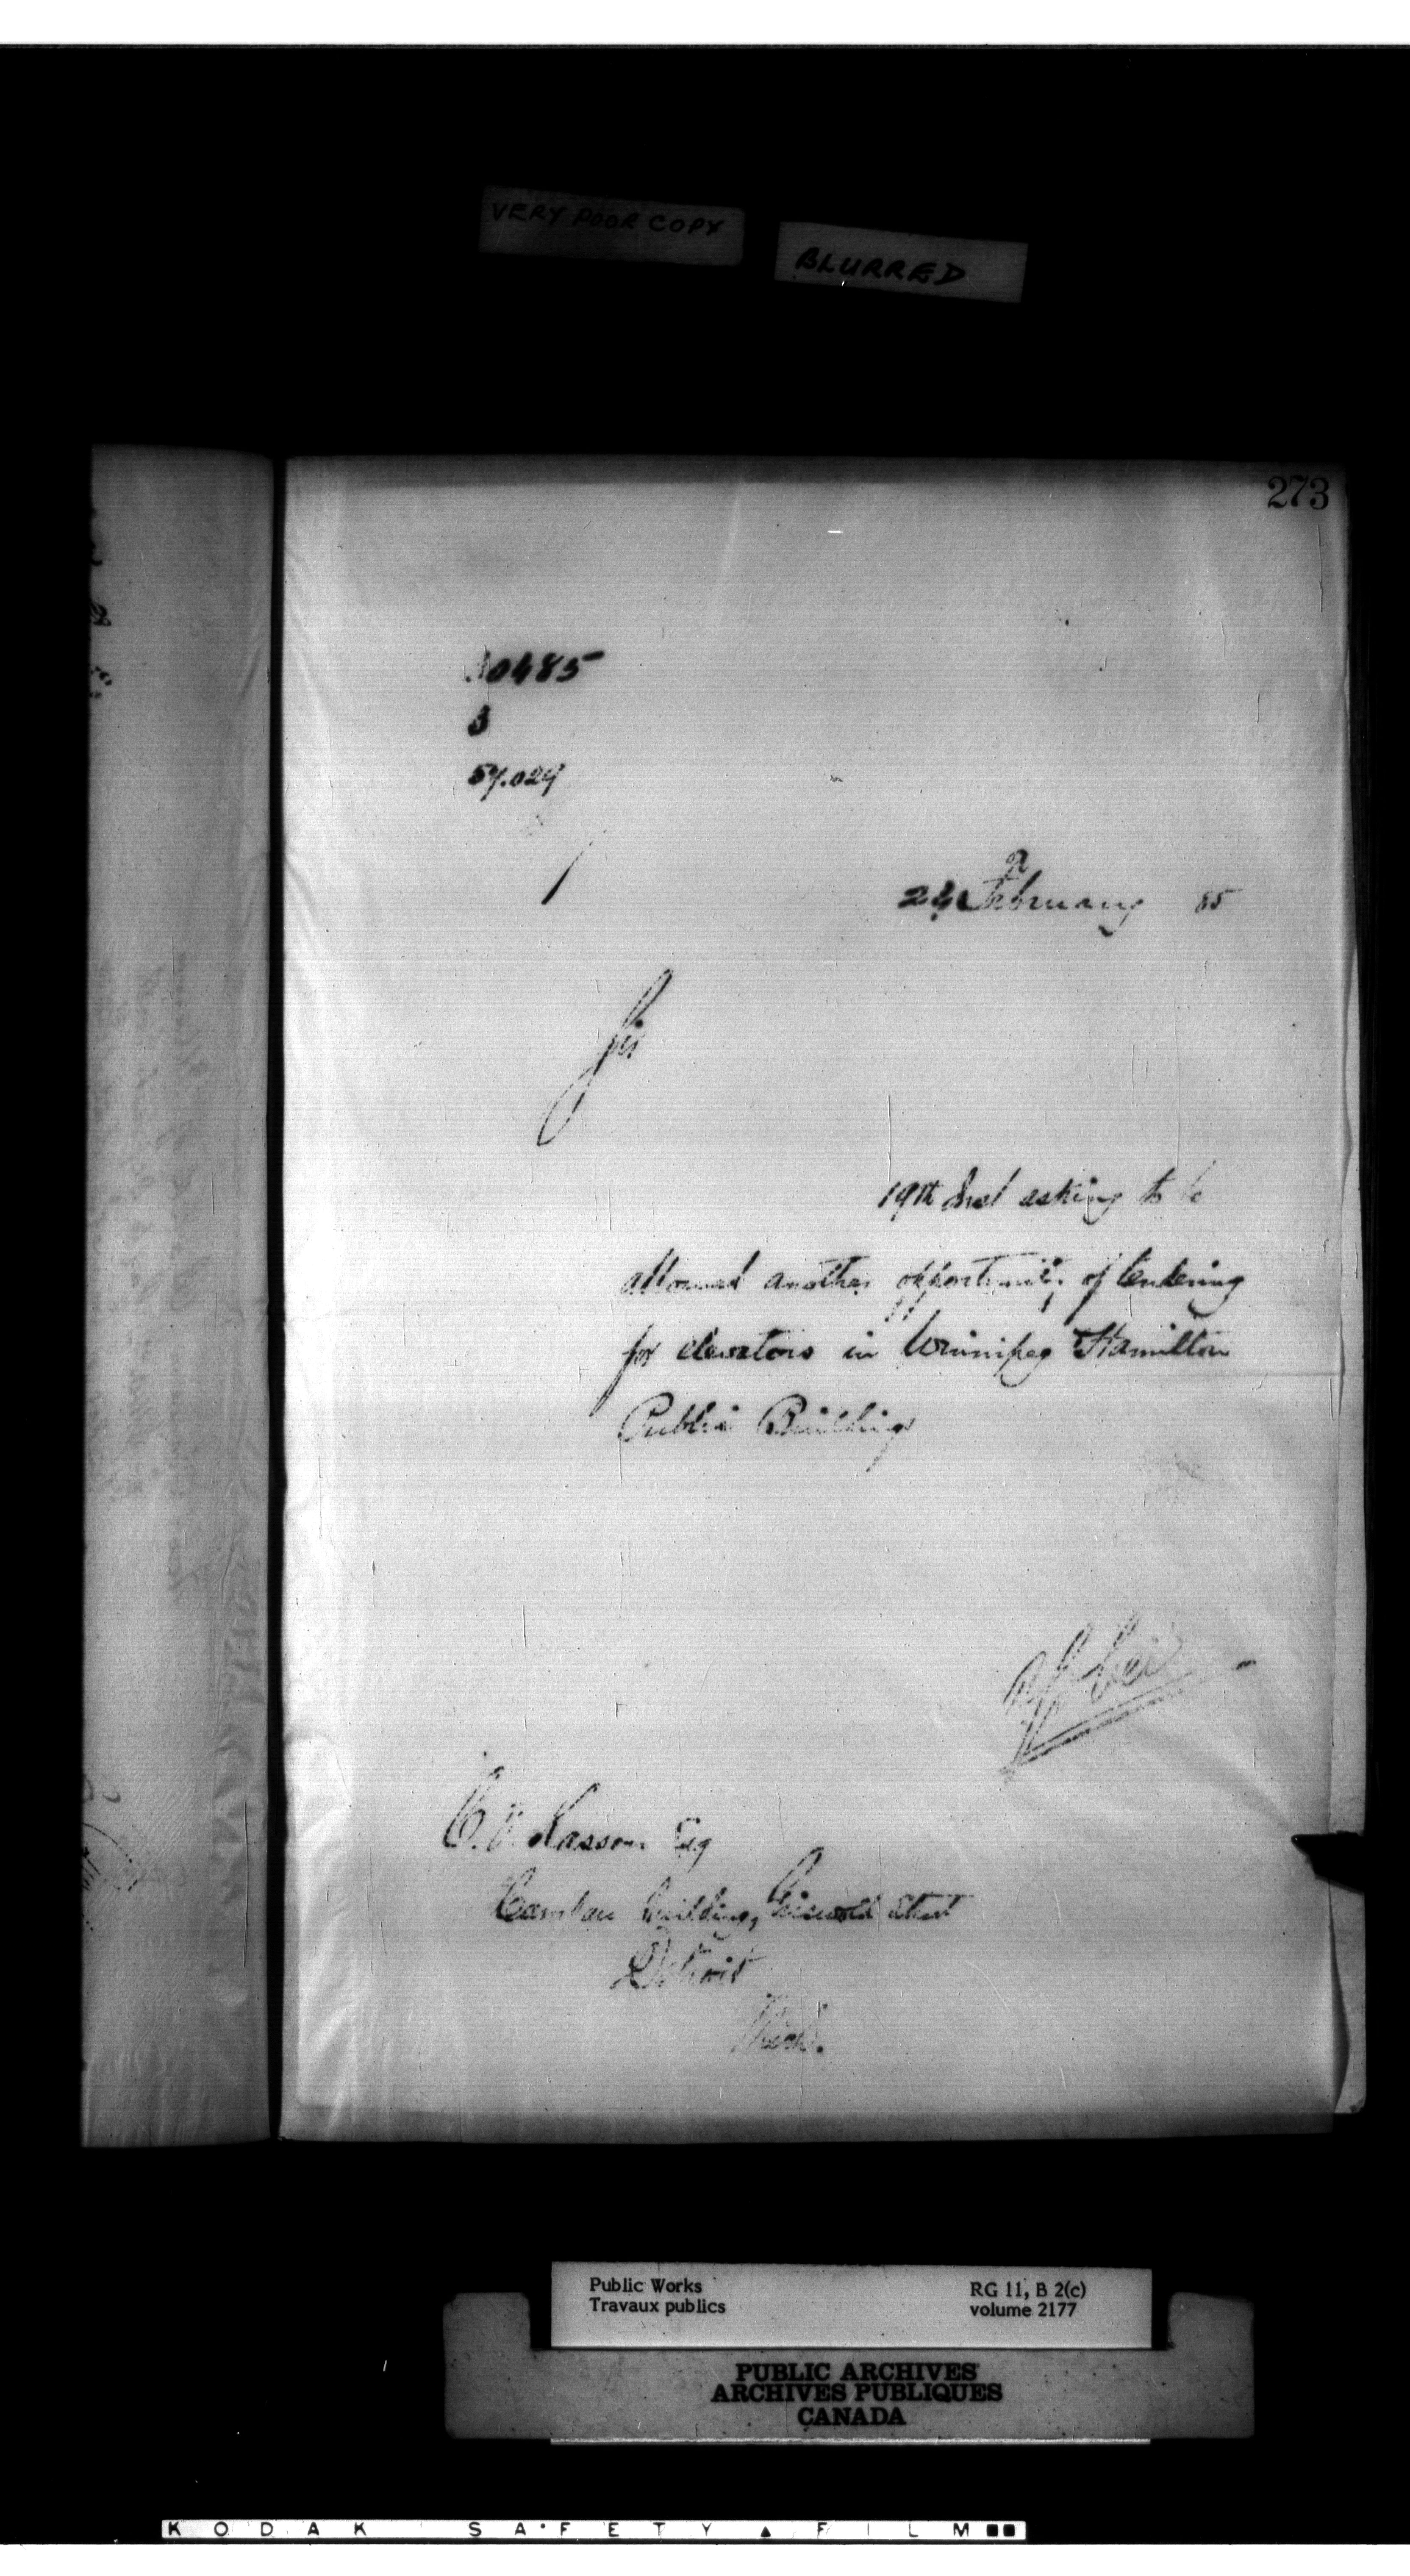 VERY POOR COPY
BLURRED
273
0485
3
57.029
February 85
Sir
19th Inst asking to be
allowed another opportunity of tendering
for elevators in Winnipeg Hamilton
Public Buildings
Esq
Campau Building, Griswold Street
Detroit
Mich.
Public Works
Travaux publics
RG 11, B 2(c)
volume 2177
PUBLIC ARCHIVES
ARCHIVES PUBLIQUES
CANADA
KODAK SAFETY FILM